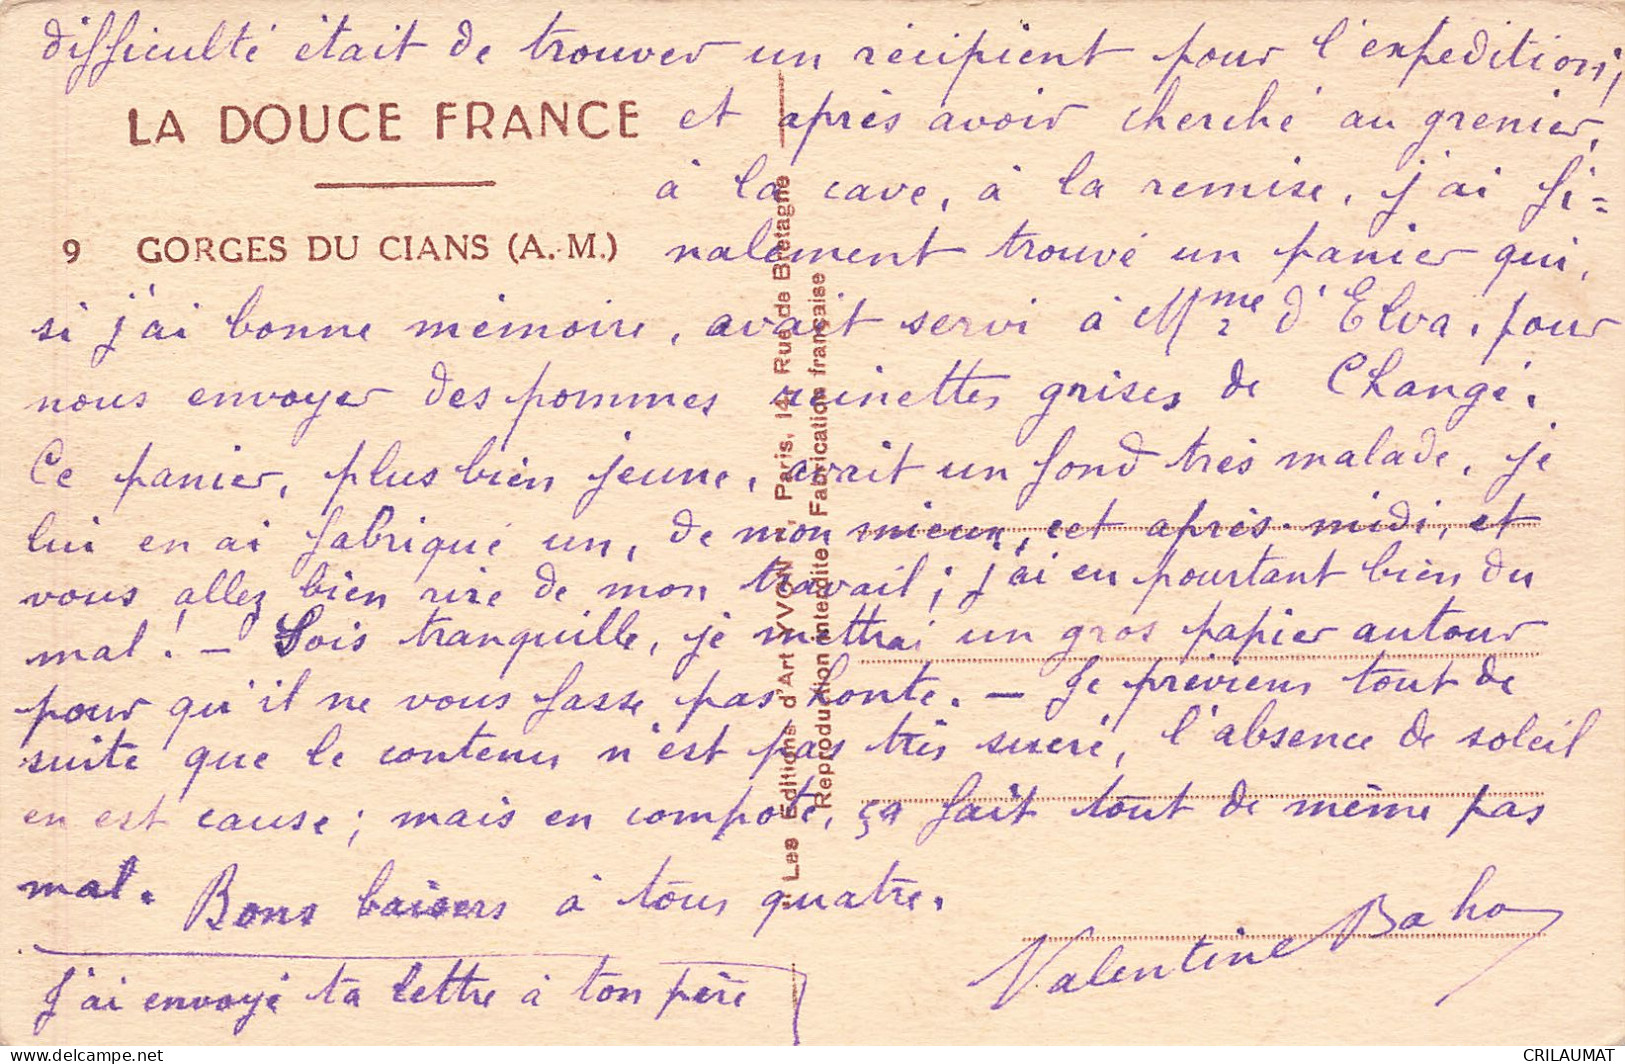 difficulté était de trouver un récipient pour l'expédition,
LA DOUCE FRANCE
et après avoir cherché au grenier,
à la cave, à la remise, j'ai fi=
9 GORGES DU CIANS (A.-M.)
nalement trouvé un panier qui,
si j'ai bonne mémoire, avait servi à Mme d'Elva, pour
nous envoyer des pommes reinettes grises de Changé.
Ce panier, plus bien jeune, avait un fond très malade, je
lui en ai fabriqué un, de mon mieux, cet après-midi, et
vous allez bien rire de mon travail; j'ai eu pourtant bien du
mal! — Sois tranquille, je mettrai un gros papier autour
pour qu'il ne vous fasse pas honte. — Je préviens tout de
suite que le contenu n'est pas très sucré, l'absence de soleil
en est cause; mais en compote, ça fait tout de même pas
mal. Bons baisers à tous quatre.
Valentine Baho
J'ai envoyé ta lettre à ton père
Les Editions d'Art YVON, Paris, 14, Rue de Bretagne
Reproduction interdite Fabrication française
CRILAUMAT